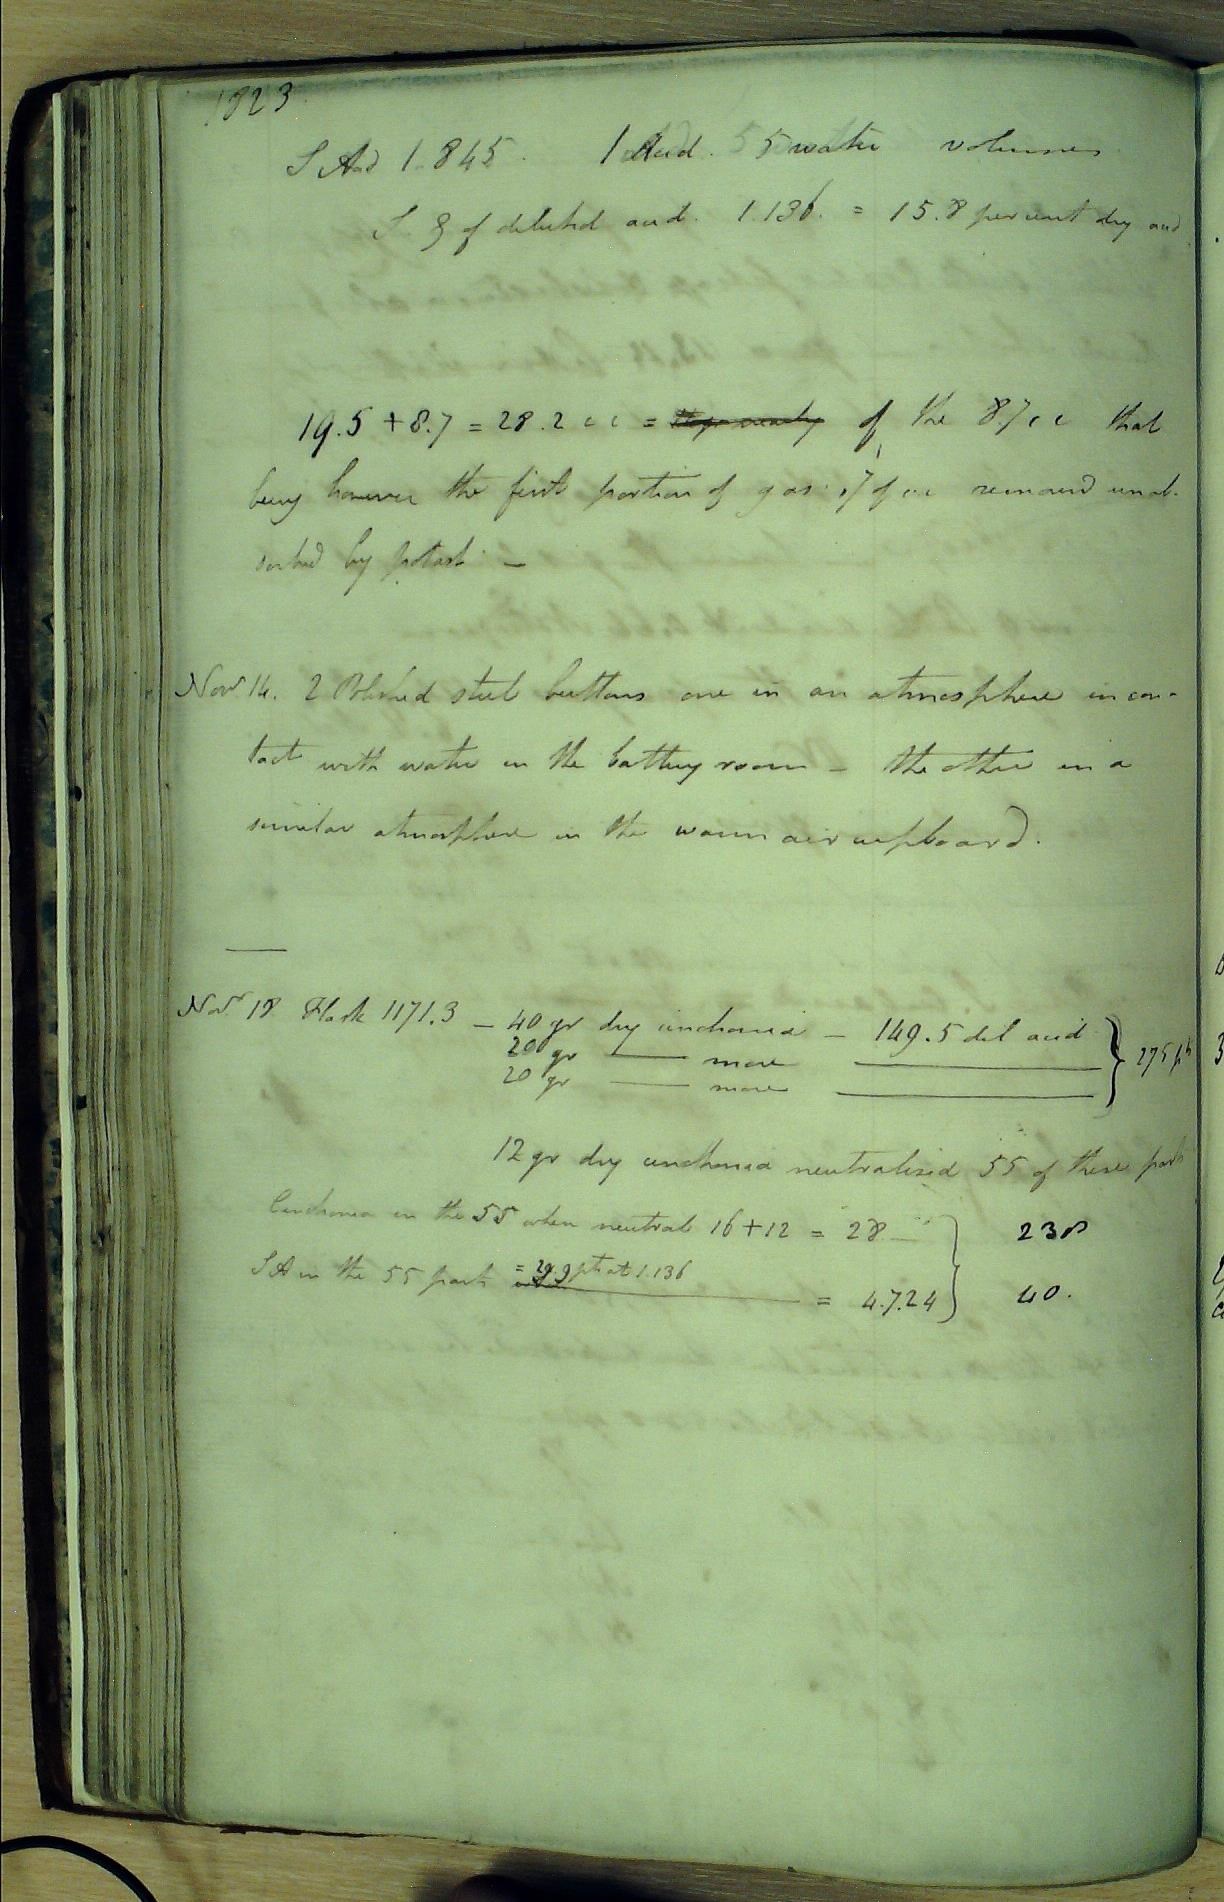 1823
S Acid 1.845. 1 Acid. 5 water volumes
S. G of diluted acid. 1.136. = 15.8 per cent dry acid
19.5 + 8.7 = 28.2 c c = of the 8.7 c c that
being however the first portion of gas .7 of c c remained unab-
sorbed by potash —
Novr 14. 2 Polished steel buttons one in an atmosphere in con-
tact with water in the battery room — the other in a
similar atmosphere in the warm air cupboard.
Novr 18 Flask 1171.3 — 40 gr dry cinchonia — 149.5 dil acid
20 gr —— more ——
20 gr —— more ——
} 275 pts
12 gr dry cinchonia neutralized 55 of these parts
Cinchonia in the 55 when neutral 16 + 12 = 28 — } 238
S A in the 55 parts = 29.9 pts at 1.136
—— = 4.724 } 40.